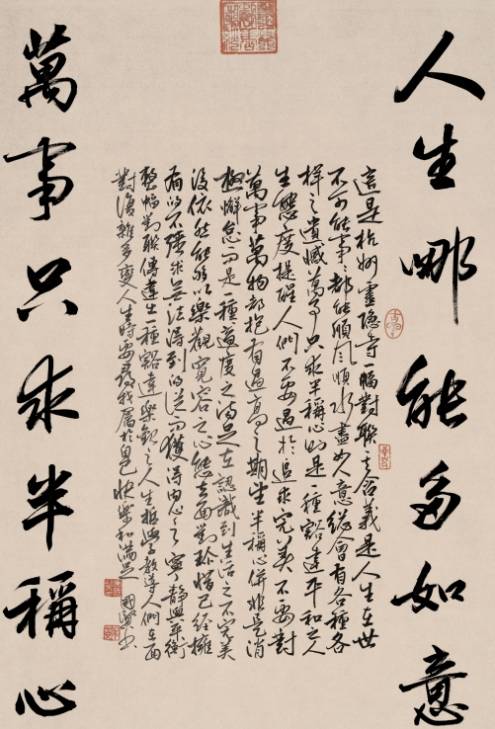 人生哪能多如意
這是杭州靈隐寺一幅對聯其含義是人生在世
不可能事事都能順風順水盡如人意總會有各種各
樣之遺憾萬事只求半稱心則是一種豁達平和之人
生態度提醒人們不要過於追求完美不要對
萬事萬物都抱有過高之期望半稱心併非是消
極懈怠而是一種適度之滿足在認識到生活之不完美
後依然能夠以樂觀寬容之心態去面對珍惜已經擁
有的不強求無法得到的從而獲得内心之寧靜與平衡
整幅對聯傳達出一種豁達樂觀之人生哲學教導人們在面
對複雜多變人生時要尋找屬於自己快樂和滿足
萬事只求半稱心